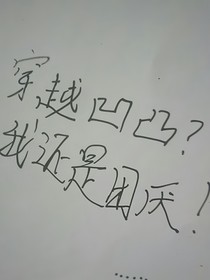 穿越凹凸？
我还是团厌！
……